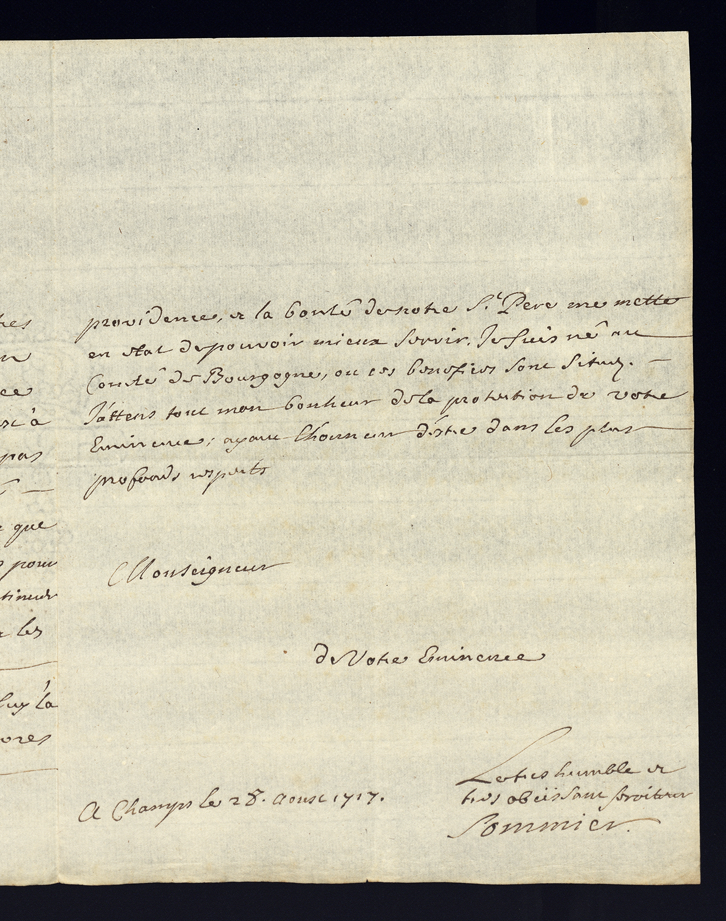 providence, et la bonté de notre S.t Pere me mette
en etat de pouvoir mieux servir. Je suis né au
Comté de Bourgogne, ou ces benefices sont situez.
J'attens tout mon bonheur de la protection de votre
Eminence; ayant l'honneur d'estre dans les plus
profonds respects
Monseigneur
de Votre Eminence
A Champs le 28. Aoust 1717.
Le tres humble et
tres obeissant serviteur
Sommier.
que
pas
pour
les